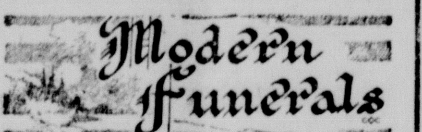 Modern
Funerals